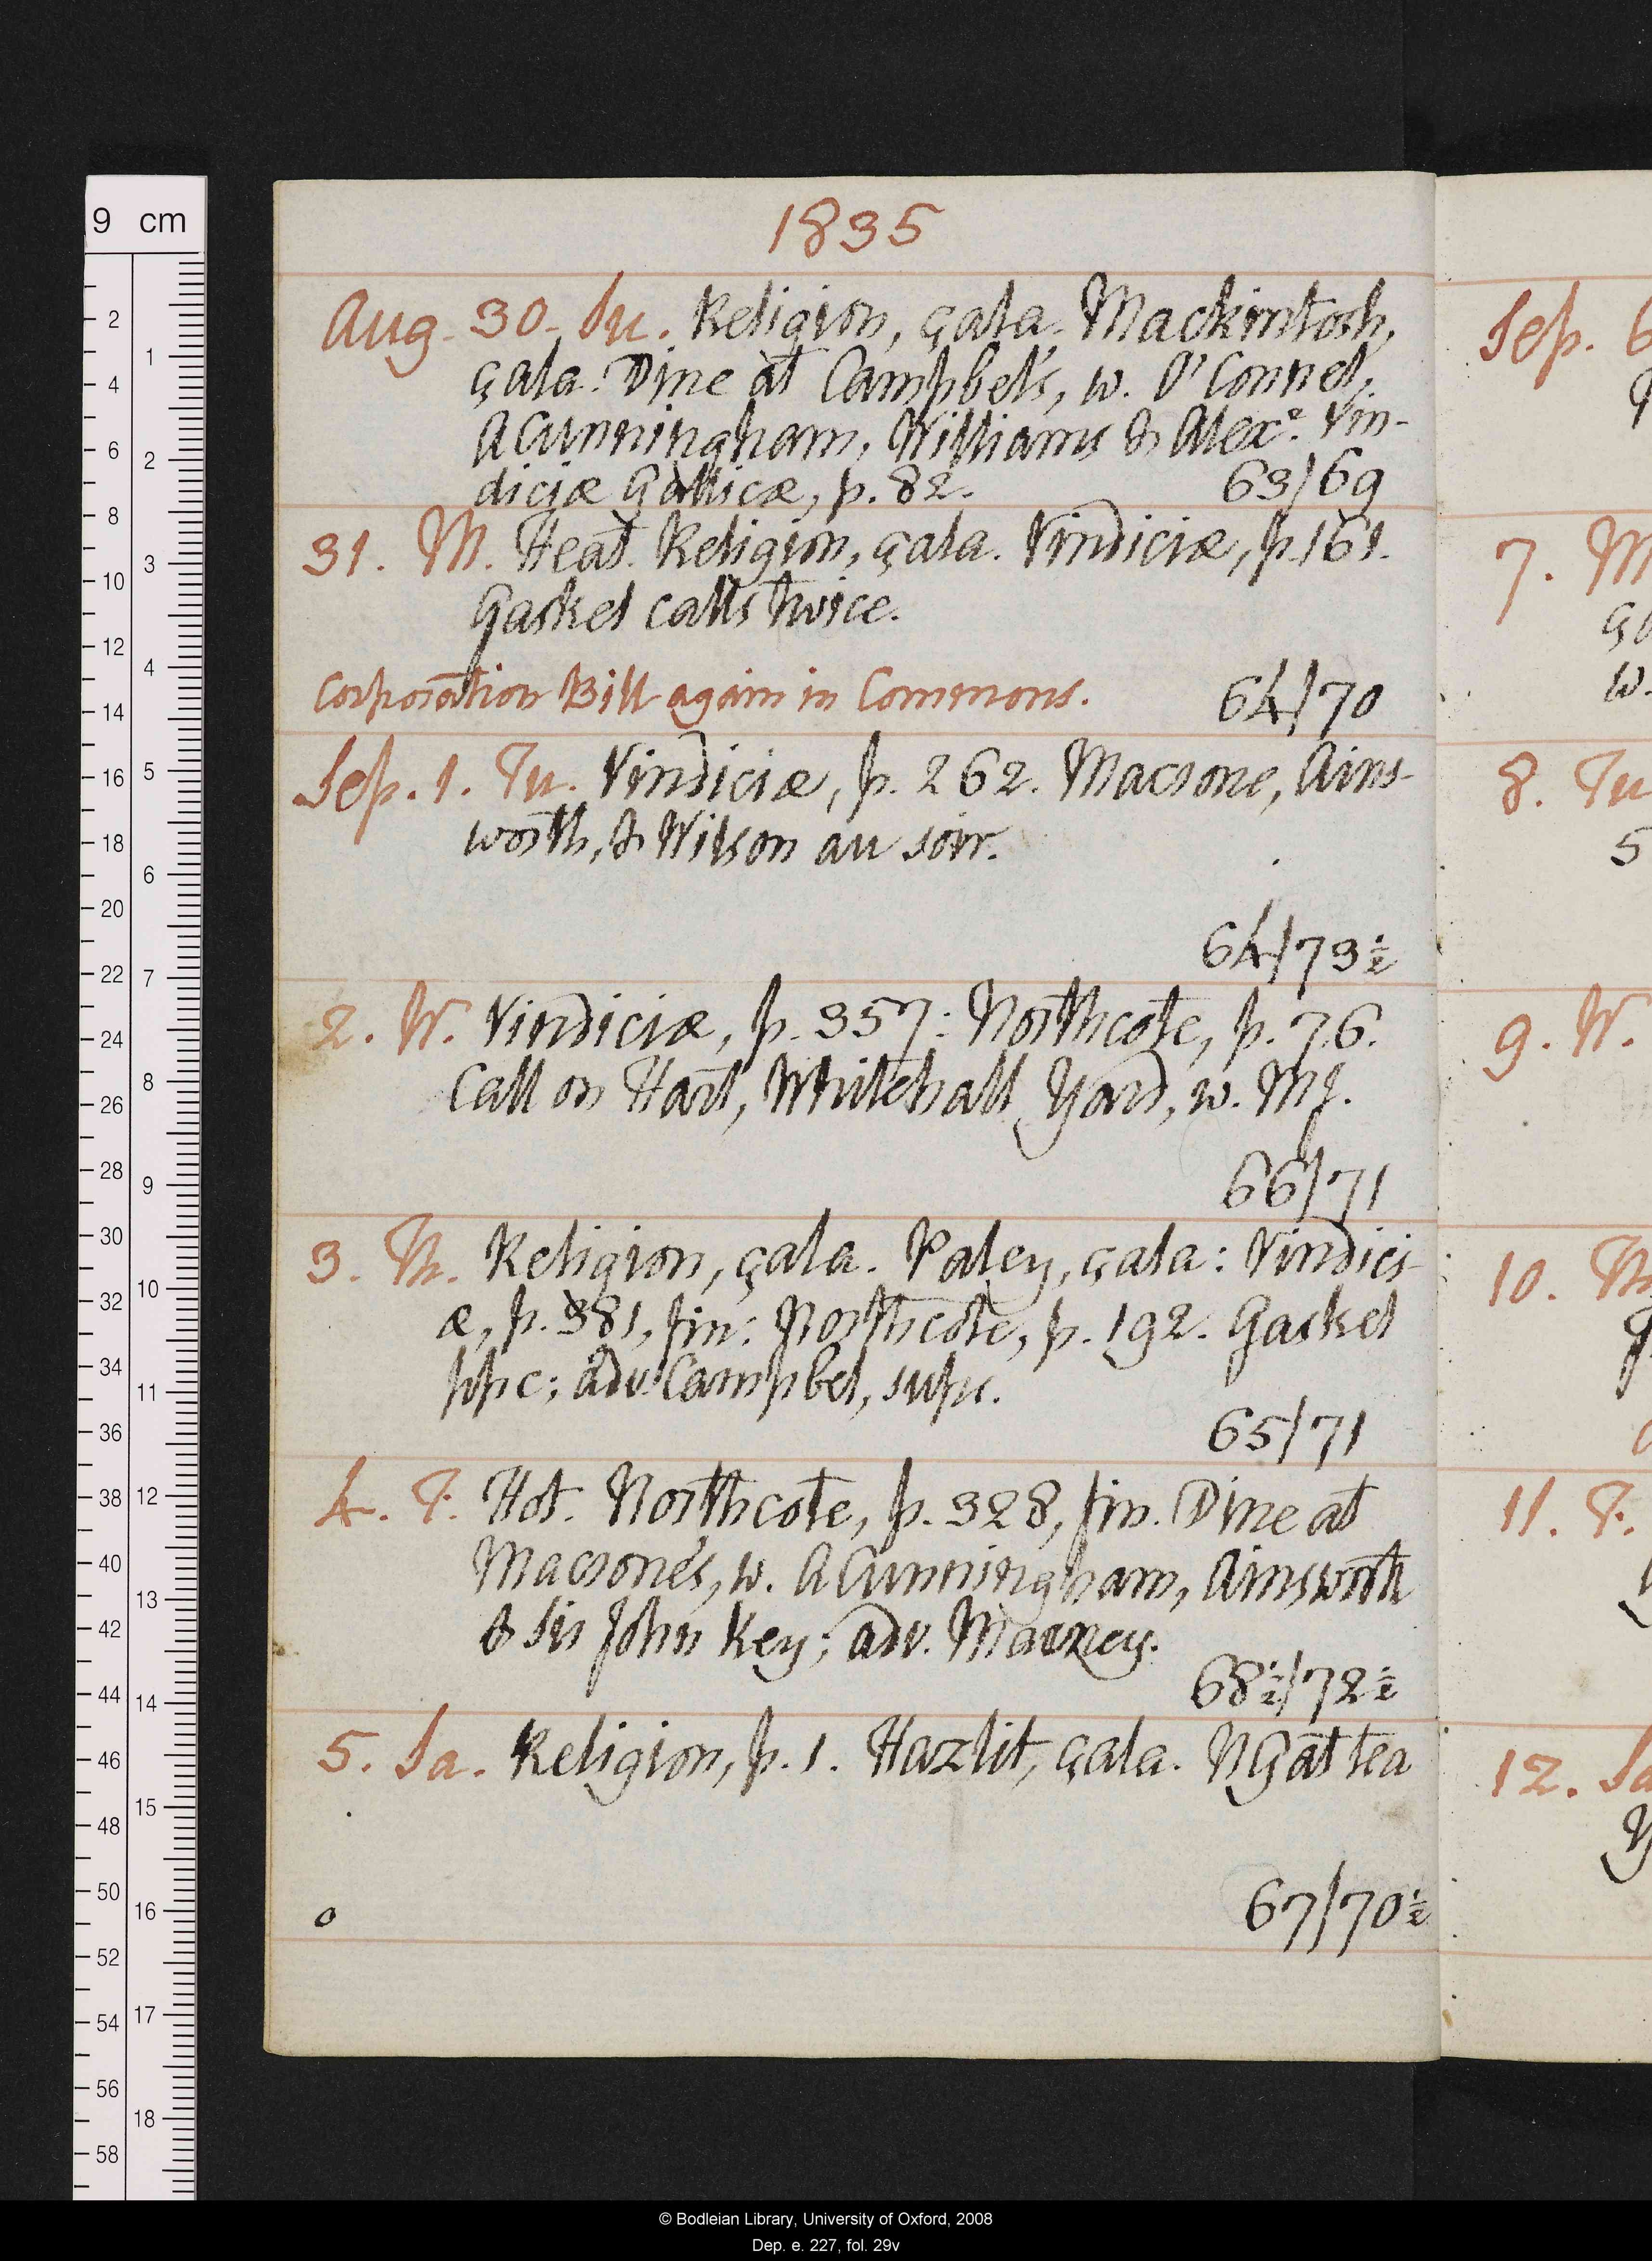 1835
Aug. 30. Su. Religion, çala. Mackintosh,
çala. Dine at Campbel's, w. O'Connel,
ACunningham, Williams & Alexr. Vin-
diciæ Gallicæ, p. 82. 63/69
31. M. Heat. Religion, çala. Vindiciæ, p. 161.
Gaskel calls twice.
Corporation Bill again in Commons. 64/70
Sep. 1. Tu. Vindiciæ, p. 262. Macrone, Ains-
worth, & Wilson au soir.
64/73½
2. W. Vindiciæ, p. 357: Northcote, p. 76.
Call on Hart, Whitehall Yard, w. MJ.
66/71
3. Th. Religion, çala. Paley, çala: Vindici-
æ, p. 381, fin: Northcote, p. 192. Gaskel
ppc; adv. Campbel, sups.
65/71
4. F. Hot. Northcote, p. 328, fin. Dine at
Macrone's, w. ACunningham, Ainsworth
& Sir John Key; adv.
68½/72½
5. Sa. Religion, p. 1. Hazlit, çala. NG at tea
67/70½
Sep. 6
7. M
ça
w.
8. Tu
5
9. W.
10. Th
11. F.
12. Sa
9 cm
2
4
6
8
10
12
14
16
18
20
22
24
26
28
30
32
34
36
38
40
42
44
46
48
50
52
54
56
58
1
2
3
4
5
6
7
8
9
10
11
12
13
14
15
16
17
18
© Bodleian Library, University of Oxford, 2008
Dep. e. 227, fol. 29v